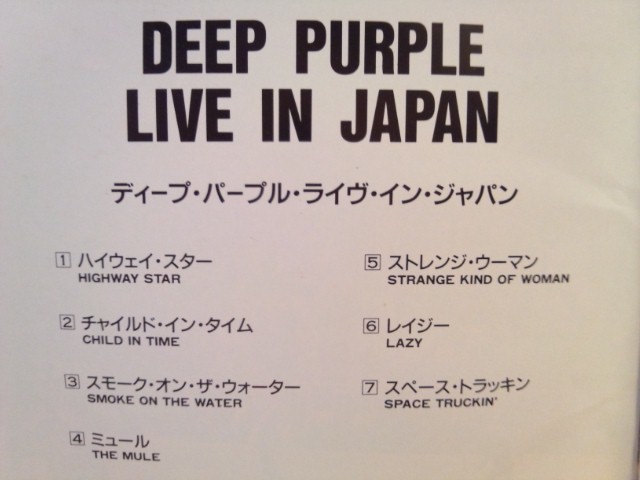 DEEP PURPLE
LIVE IN JAPAN
ディープ・パープル・ライヴ・イン・ジャパン
1 ハイウェイ・スター
HIGHWAY STAR
2 チャイルド・イン・タイム
CHILD IN TIME
3 スモーク・オン・ザ・ウォーター
SMOKE ON THE WATER
4 ミュール
THE MULE
5 ストレンジ・ウーマン
STRANGE KIND OF WOMAN
6 レイジー
LAZY
7 スペース・トラッキン
SPACE TRUCKIN'